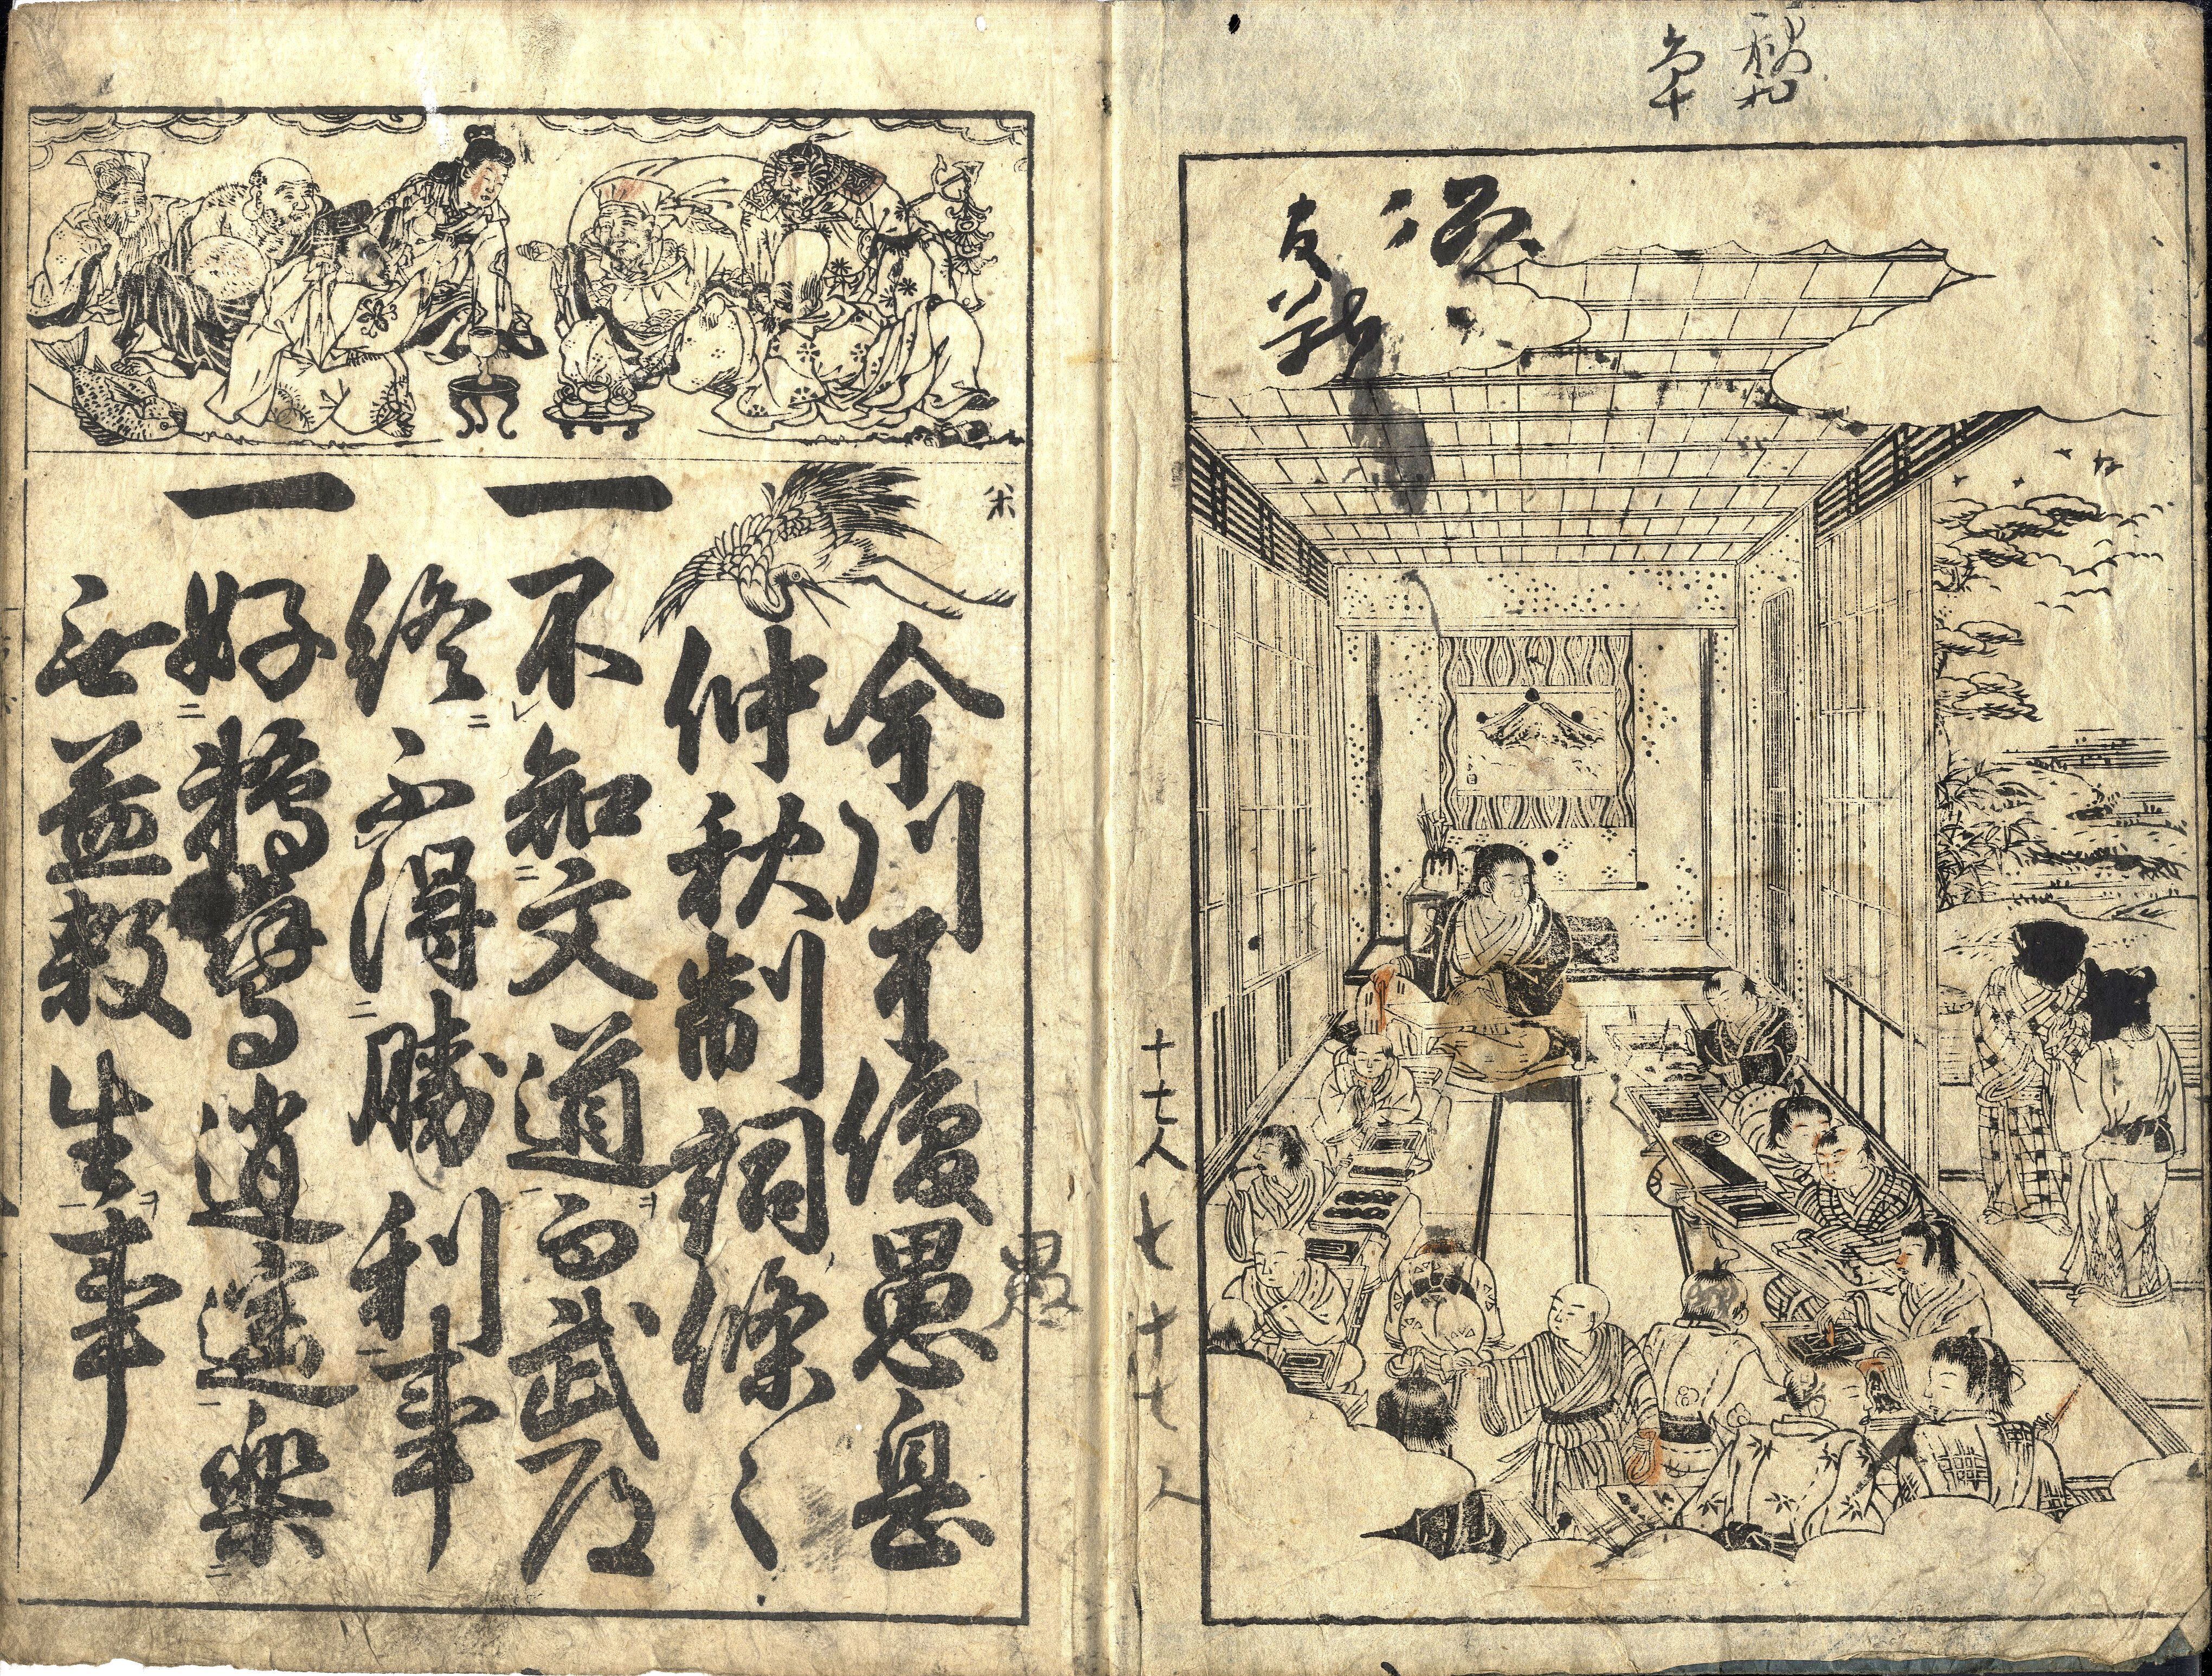 十七人七十七人
今川了俊愚息
仲秋制詞條々
一不知文道而武道
終不得勝利事
一好鵜鷹逍遥樂
無益殺生事
愚